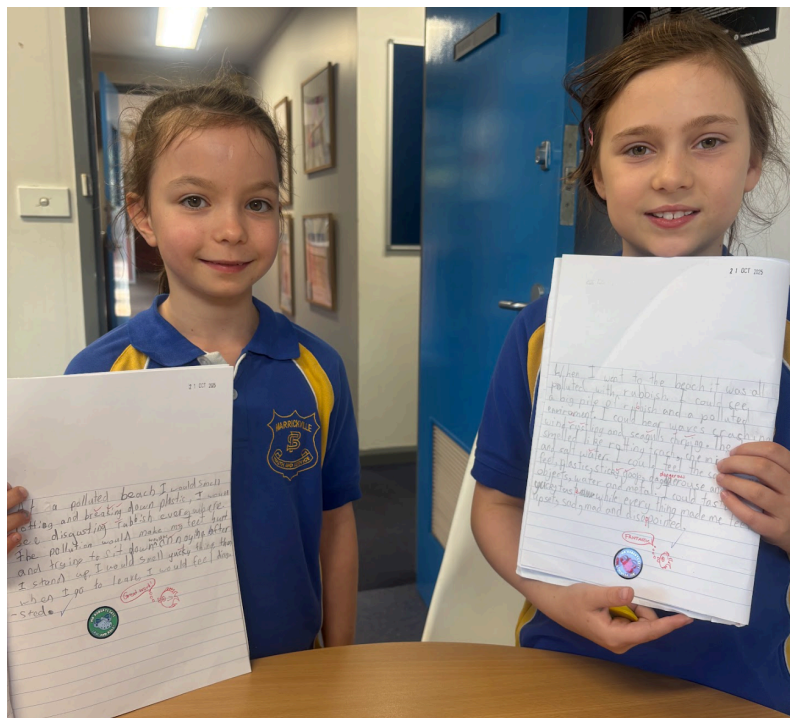 21 OCT 2025
At a polluted beach I would smell
rotting and breaking down plastic. I would
see disgusting rubbish everywhere.
The pollution would make my feet hurt
and trying to sit down annoying
I stand up. I would smell yucky
when I go to leave I would feel
Great work
MARRICKVILLE
21 OCT 2025
When I went to the beach it was all
polluted with rubbish. I could see
a big pile of rubish and a polluted
enviroment. I could hear waves crashing
wind and seagulls
smelled like rotting
water. I could feel the
plastic, sticky dangerouse
dangerous
objects, water and metal. I could tast
while every thing made me feel
upset, sad, mad and disapointed.
Fantastic